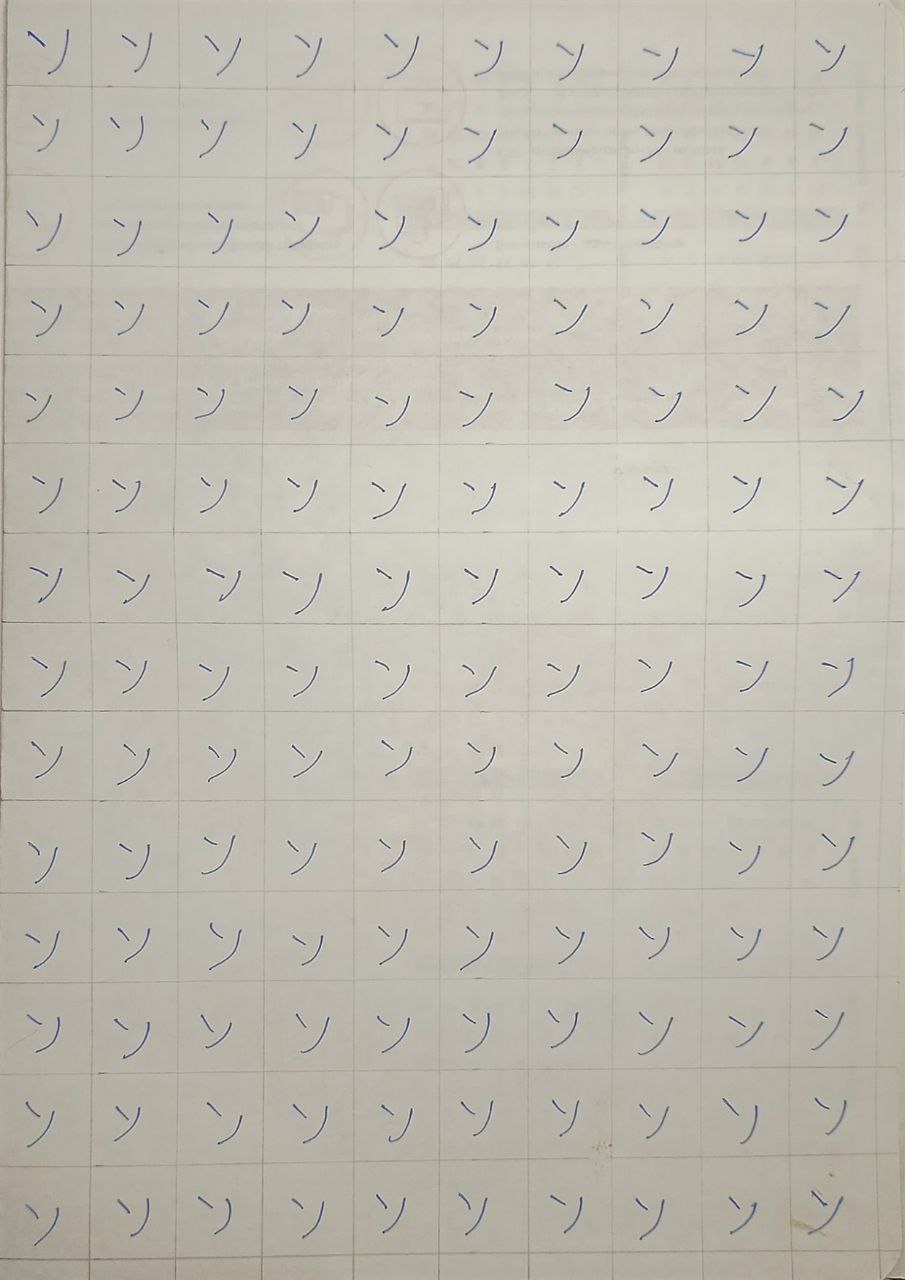 ソ ソ ソ ソ ソ ソ ソ ソ ソ ソ
ソ ソ ソ ソ ソ ソ ソ ソ ソ ソ
ソ ソ ソ ソ ソ ソ ソ ソ ソ ソ
ソ ソ ソ ソ ソ ソ ソ ソ ソ ソ
ソ ソ ソ ソ ソ ソ ソ ソ ソ ソ
ソ ソ ソ ソ ソ ソ ソ ソ ソ ソ
ソ ソ ソ ソ ソ ソ ソ ソ ソ ソ
ソ ソ ソ ソ ソ ソ ソ ソ ソ ソ
ソ ソ ソ ソ ソ ソ ソ ソ ソ ソ
ソ ソ ソ ソ ソ ソ ソ ソ ソ ソ
ソ ソ ソ ソ ソ ソ ソ ソ ソ ソ
ソ ソ ソ ソ ソ ソ ソ ソ ソ ソ
ソ ソ ソ ソ ソ ソ ソ ソ ソ ソ
ソ ソ ソ ソ ソ ソ ソ ソ ソ ソ